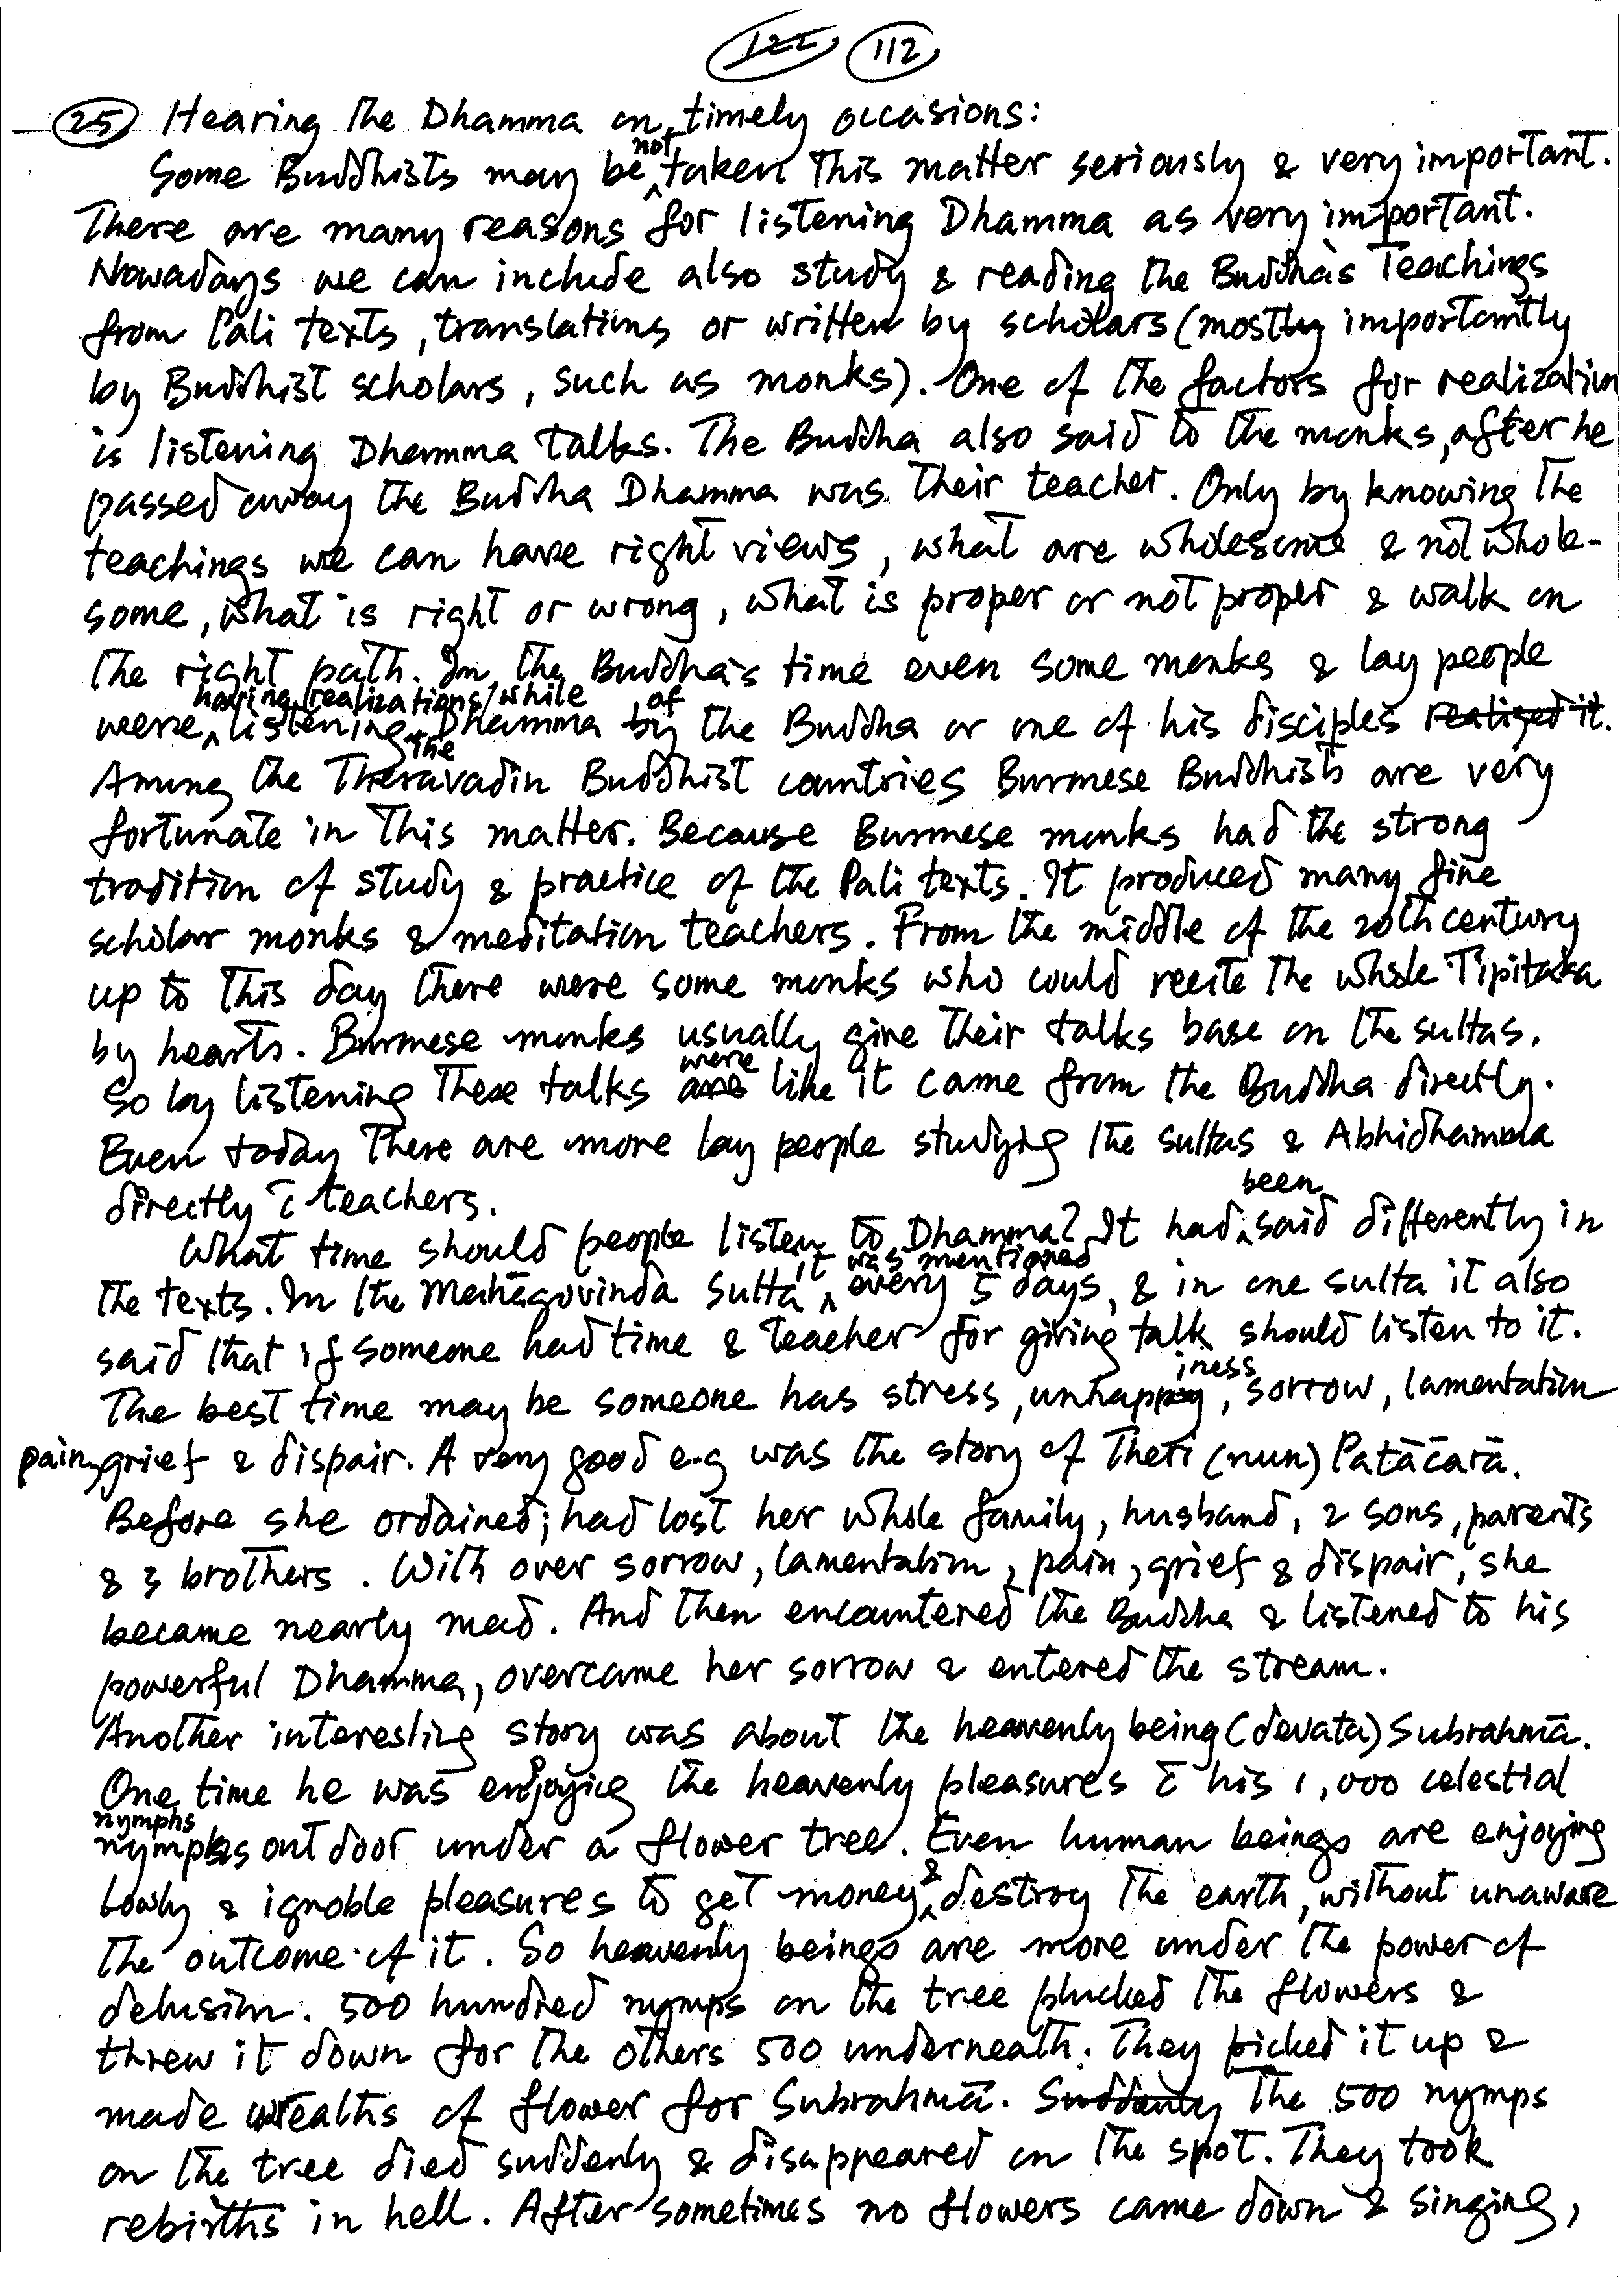 122 112
25 Hearing the Dhamma on timely occasions:
Some Buddhists may be not taken this matter seriously & very important.
There are many reasons for listening Dhamma as very important.
Nowadays we can include also study & reading the Buddha's Teachings
from Pali texts, translations or written by scholars (mostly importantly
by Buddhist scholars, such as monks). One of the factors for realization
is listening Dhamma talks. The Buddha also said to the monks, after he
passed away the Buddha Dhamma was their teacher. Only by knowing the
teachings we can have right views, what are wholesome & not whole-
some, what is right or wrong, what is proper or not proper & walk on
the right path. In the Buddha's time even some monks & lay people
were having realizations/while listening the Dhamma by of the Buddha or one of his disciples realized it.
Among the Theravadin Buddhist countries Burmese Buddhists are very
fortunate in this matter. Because Burmese monks had the strong
tradition of study & practice of the Pali texts. It produced many fine
scholar monks & meditation teachers. From the middle of the 20th century
up to this day there were some monks who could recite the whole Tipitaka
by hearts. Burmese monks usually give their talks base on the suttas.
So by listening these talks are were like it came from the Buddha directly.
Even today there are more lay people studying the suttas & Abhidhamma
directly c̄ teachers.
What time should people listen to Dhamma? It had been said differently in
the texts. In the Mahāgovinda Sutta it was mentioned every 5 days, & in one sutta it also
said that if someone had time & teacher for giving talk should listen to it.
The best time may be someone has stress, unhappyiness, sorrow, lamentation
pain, grief & dispair. A very good e.g was the story of Theri (nun) Patācārā.
Before she ordained; had lost her whole family, husband, 2 sons, parents
& 3 brothers. With over sorrow, lamentation, pain, grief & dispair, she
became nearly mad. And then encountered the Buddha & listened to his
powerful Dhamma, overcame her sorrow & entered the stream.
Another interesting story was about the heavenly being (devata) Subrahmā.
One time he was enjoying the heavenly pleasures c̄ his 1,000 celestial
nymphs nymphs out door under a flower tree. Even human beings are enjoying
lowly & ignoble pleasures to get money & destroy the earth, without unaware
the outcome of it. So heavenly beings are more under the power of
delusion. 500 hundred nymps on the tree plucked the flowers &
threw it down for the others 500 underneath. They picked it up &
made wrealths of flower for Subrahmā. Suddenly The 500 nymps
on the tree died suddenly & disappeared on the spot. They took
rebirths in hell. After sometimes no flowers came down & singing,